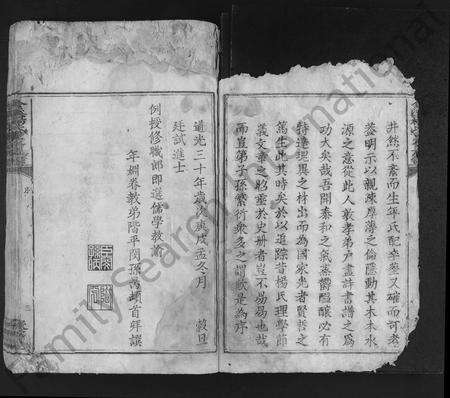 井然不紊而生卒氏配卒葬又確而可考
蓋明示以親疎厚薄之倫隱動其木本水
源之意從此人敦孝弟戶盡詩書譜之為
功大矣哉吾聞泰和之氣蒸鬱醞釀必有
特達瓌異之材出而為國家光者賢哲之
篤生此其時矣於以追踪昔楊氏理學節
義文章之昭垂於史冊者豈不易易也哉
而豈第子孫繁衍衆多之謂歟是為序
道光三十年歲次庚戌孟冬月 穀旦
廷試進士
例授修職郎即選儒學教諭
年姻眷教弟階平閔孫禼頓首拜撰
FamilySearch International